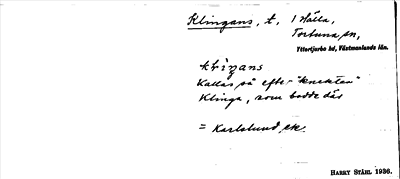 Klingans, t, 1 Hälla,
Tortuna sn,
Yttertjurbo hd, Västmanlands län.
Kallas så efter "knekten"
Klinga, som bodde där
= Karlslund sk.
HARRY STÅHL 1936.